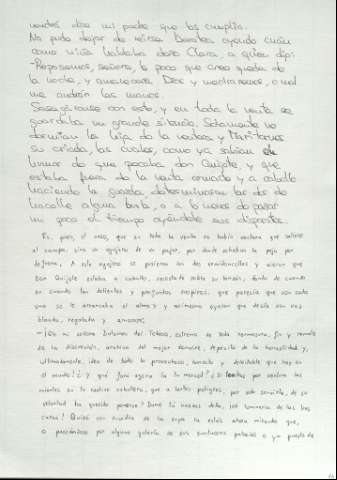 No pudo dejar de reírse Dorotea oyendo cuán
como niña hablaba doña Clara, a quien dijo:
-Reposemos, señora, lo poco que creo queda de
la noche, y amanecerá Dios y medraremos, o mal
me andarán las manos.
Sosegáronse con esto, y en toda la venta se
guardaba un grande silencio. Solamente no
dormían la hija de la ventera y Maritornes
su criada, las cuales, como ya sabían el
humor de que pecaba don Quijote, y que
estaba fuera de la venta armado y a caballo
haciendo la guarda, determinaron las dos de
hacelle alguna burla, o a lo menos de pasar
un poco el tiempo oyéndole sus disparates.
Es, pues, el caso, que en toda la venta no había ventana que saliese
al campo, sino un agujero de un pajar, por donde echaban la paja por
defuera. A este agujero se pusieron las dos semidoncellas y vieron que
Don Quijote estaba a caballo, recostado sobre su lanzón, dando de cuando
en cuando tan dolientes y profundos suspiros, que parecía que con cada
uno se le arrancaba el alma; y asimismo oyeron que decía con voz
blanda, regalada y amorosa:
-¡Oh mi señora Dulcinea del Toboso, extremo de toda hermosura, fin y remate
de la discreción, archivo del mejor donaire, depósito de la honestidad y,
ultimadamente, idea de todo lo provechoso, honesto y deleitable que hay en
el mundo! ¿Y qué fará agora la tu merced? ¿Si tendrás por ventura las
mientes en tu cautivo caballero, que a tantos peligros, por solo servirte, de su
voluntad ha querido ponerse? Dame tú nuevas della, ¡oh luminaria de las tres
caras! Quizá con envidia de la suya la estás ahora mirando que,
o paseándose por alguna galería de sus suntuosos palacios o ya puesta de